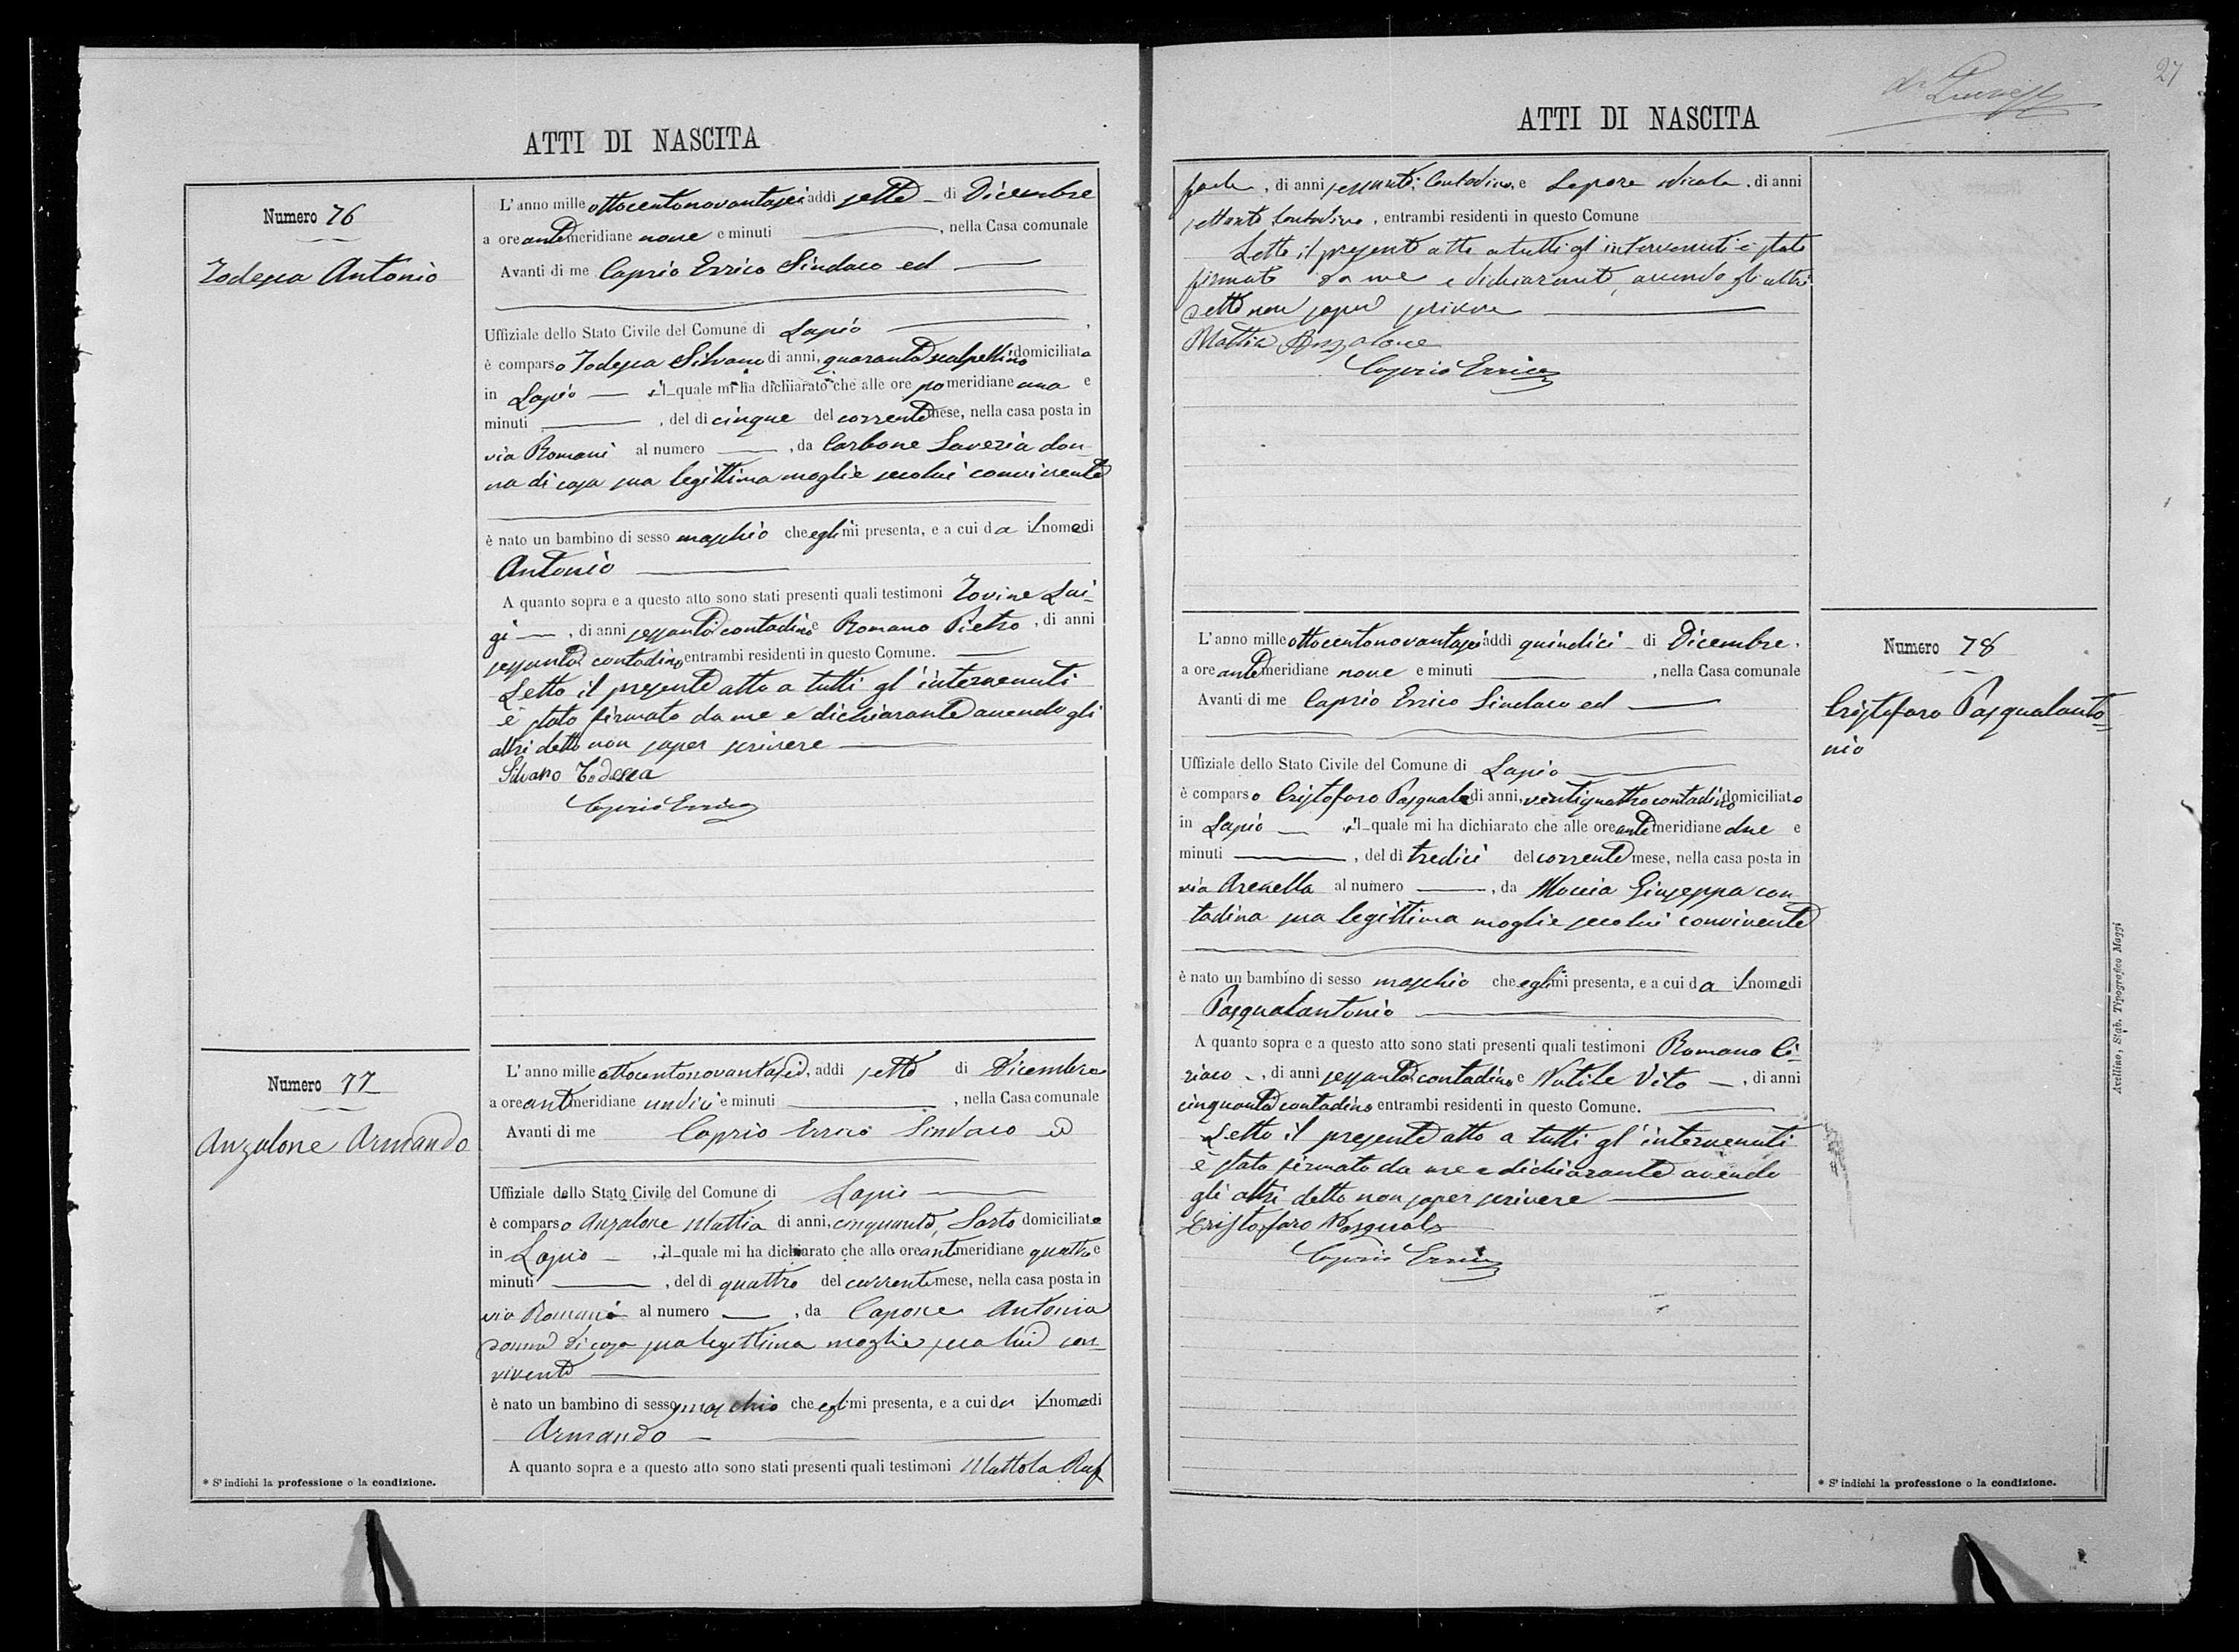 ATTI DI NASCITA
Numero 76
Todesca Antonio
L'anno mille ottocentonovantasei, addi sette di Dicembre
a ore antimeridiane nove e minuti , nella Casa comunale
Avanti di me Caprio Errico Sindaco ed
Uffiziale dello Stato Civile del Comune di Lapio ,
è comparso Todesca Silvano di anni, quaranta scalpellino domiciliato
in Lapio il quale mi ha dichiarato che alle ore pomeridiane una e
minuti , del di cinque del corrente mese, nella casa posta in
via Romani al numero , da Carbone Saveria don-
na di casa sua legittima moglie secolui convivente
è nato un bambino di sesso maschio che egli mi presenta, e a cui da il nome di
Antonio
A quanto sopra e a questo atto sono stati presenti quali testimoni Iovine Lui-
gi , di anni sessanta contadino e Romano Pietro , di anni
sessanta contadino entrambi residenti in questo Comune.
Letto il presente atto a tutti gl'intervenuti
è stato firmato da me e dichiarante avendo gli
altri detto non saper scrivere
Silvano Todesca
Caprio Errico
Numero 77
Anzalone Armando
L'anno mille ottocentonovantasei, addi sette di Dicembre
a ore antimeridiane undici e minuti , nella Casa comunale
Avanti di me Caprio Errico Sindaco ed
Uffiziale dello Stato Civile del Comune di Lapio
è comparso Anzalone Mattia di anni, cinquanta, Sarto domiciliato
in Lapio , il quale mi ha dichiarato che alle ore antimeridiane quattro e
minuti , del di quattro del corrente mese, nella casa posta in
via Romani al numero , da Capone Antonia
donna di casa sua legittima moglie seco lui con-
vivente
è nato un bambino di sesso maschio che egli mi presenta, e a cui da il nome di
Armando
A quanto sopra e a questo atto sono stati presenti quali testimoni Mattola Raf
* S'indichi la professione o la condizione.
27
ATTI DI NASCITA
faele, di anni sessanta, Contadino, e Lepore Nicola, di anni
settanta Contadino, entrambi residenti in questo Comune
Letto il presente atto a tutti gl'intervenuti è stato
firmato da me e dichiarante, avendo gli altri
detto non saper scrivere
Mattia Anzalone
Caprio Errico
Numero 78
Cristofaro Pasqualanto-
nio
L'anno mille ottocentonovantasei addi quindici di Dicembre.
a ore antimeridiane nove e minuti , nella Casa comunale
Avanti di me Caprio Errico Sindaco ed
Uffiziale dello Stato Civile del Comune di Lapio
è comparso Cristofaro Pasquale di anni, ventiquattro contadino domiciliato
in Lapio il quale mi ha dichiarato che alle ore antimeridiane due e
minuti , del di tredici del corrente mese, nella casa posta in
via Arenella al numero , da Moccia Giuseppa con-
tadina sua legittima moglie secolui convivente
è nato un bambino di sesso maschio che egli mi presenta, e a cui da il nome di
Pasqualantonio
A quanto sopra e a questo atto sono stati presenti quali testimoni Romano Ci-
riaco , di anni sessanta contadino e Natile Vito , di anni
cinquanta contadino entrambi residenti in questo Comune.
Letto il presente atto a tutti gl'intervenuti
è stato firmato da me e dichiarante avendo
gli altri detto non saper scrivere
Cristofaro Pasquale
Caprio Errico
* S'indichi la professione o la condizione.
Avellino, Stab. Tipografico Maggi